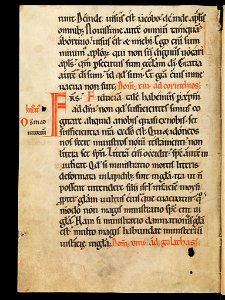 nunt. Deinde uisus est iacobo. deinde aplis
omnib; Nouissime aute omnium tamquam
abortiuo. uisus est & michi. Ego eni sum
minim aplor. qui non su dignus uocari
apls. qm psecutus sum eccliam di. Gratia
aute di sum id qd sum. & gra eius in me
uacua non fuit. Dom. ad corinthios.
Fiducia tale habemus p xpm
ad dm. non qd sufficientes simus co
gitare aliquid a nobis quasi ex nobis. sed
sufficientia nra ex do est. Qui & idoneos
nos fecit ministros noui testamenti. non
littera sed spu. Littera eni occidit. sps aute ui
uificat. Qd si ministratio mortis litteris
deformata in lapidib; fuit in gla. ita ut n
possent intendere filii isrl in facie moysi
ppter glam uultus eius que euacuatur. q
modo non magis ministratio sps erit in
gla. Nam si ministratio damnationis gla
est. multo magis habundat ministeriu
iusticie in gla. Dom. ad galathas.